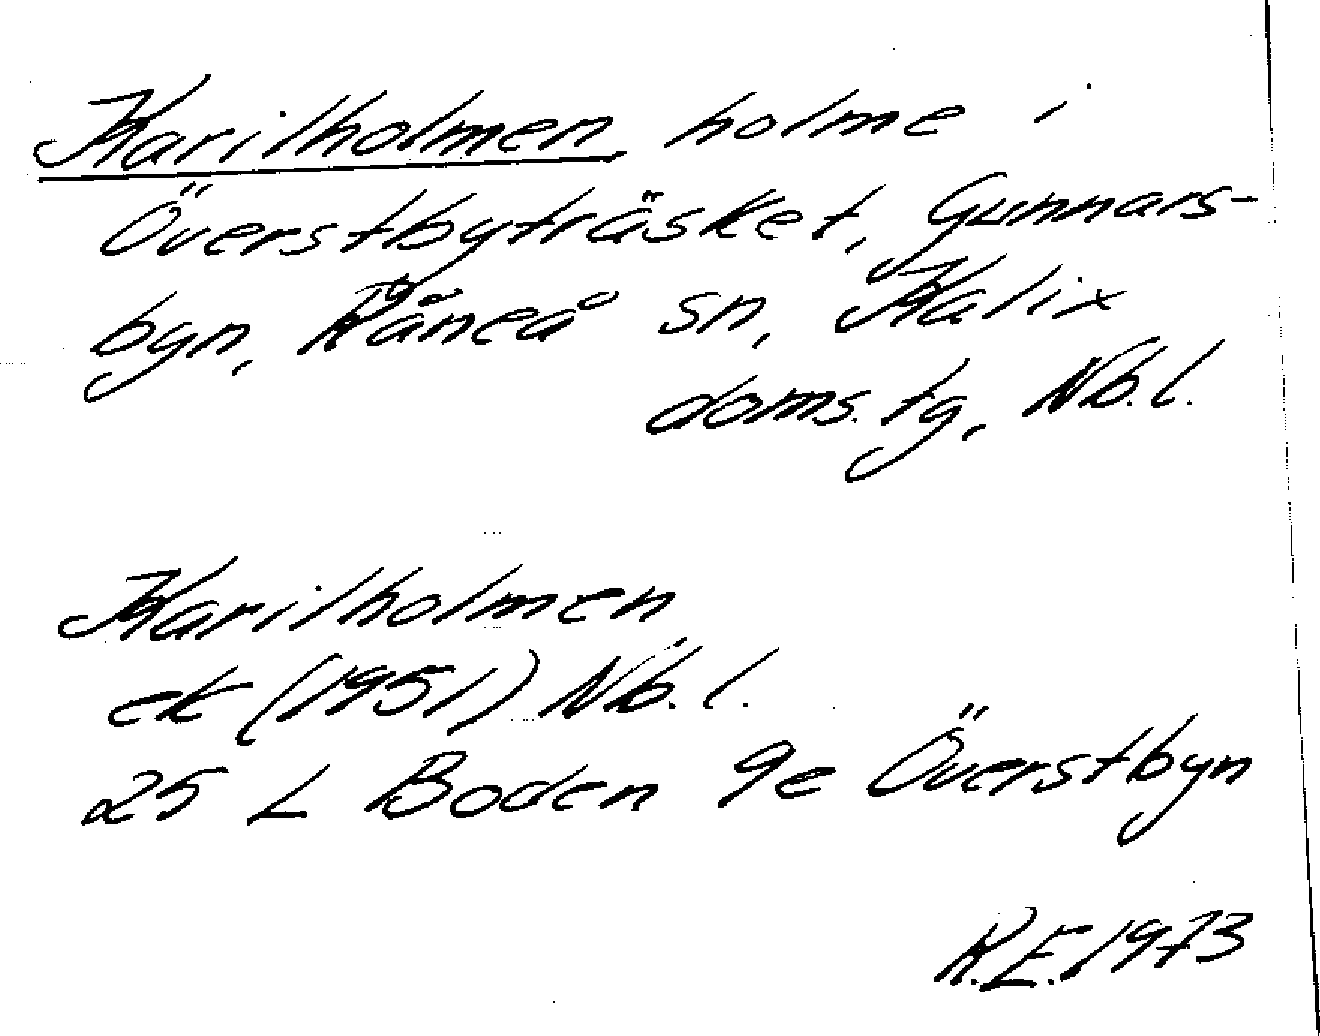 Karilholmen, holme i
Överstbyträsket, Gunnars-
byn, Råneå sn, Kalix
doms. tg, Nb. l.
Karilholmen
ek (1951) Nb. l.
25 L Boden 9e Överstbyn
R.E. 1973